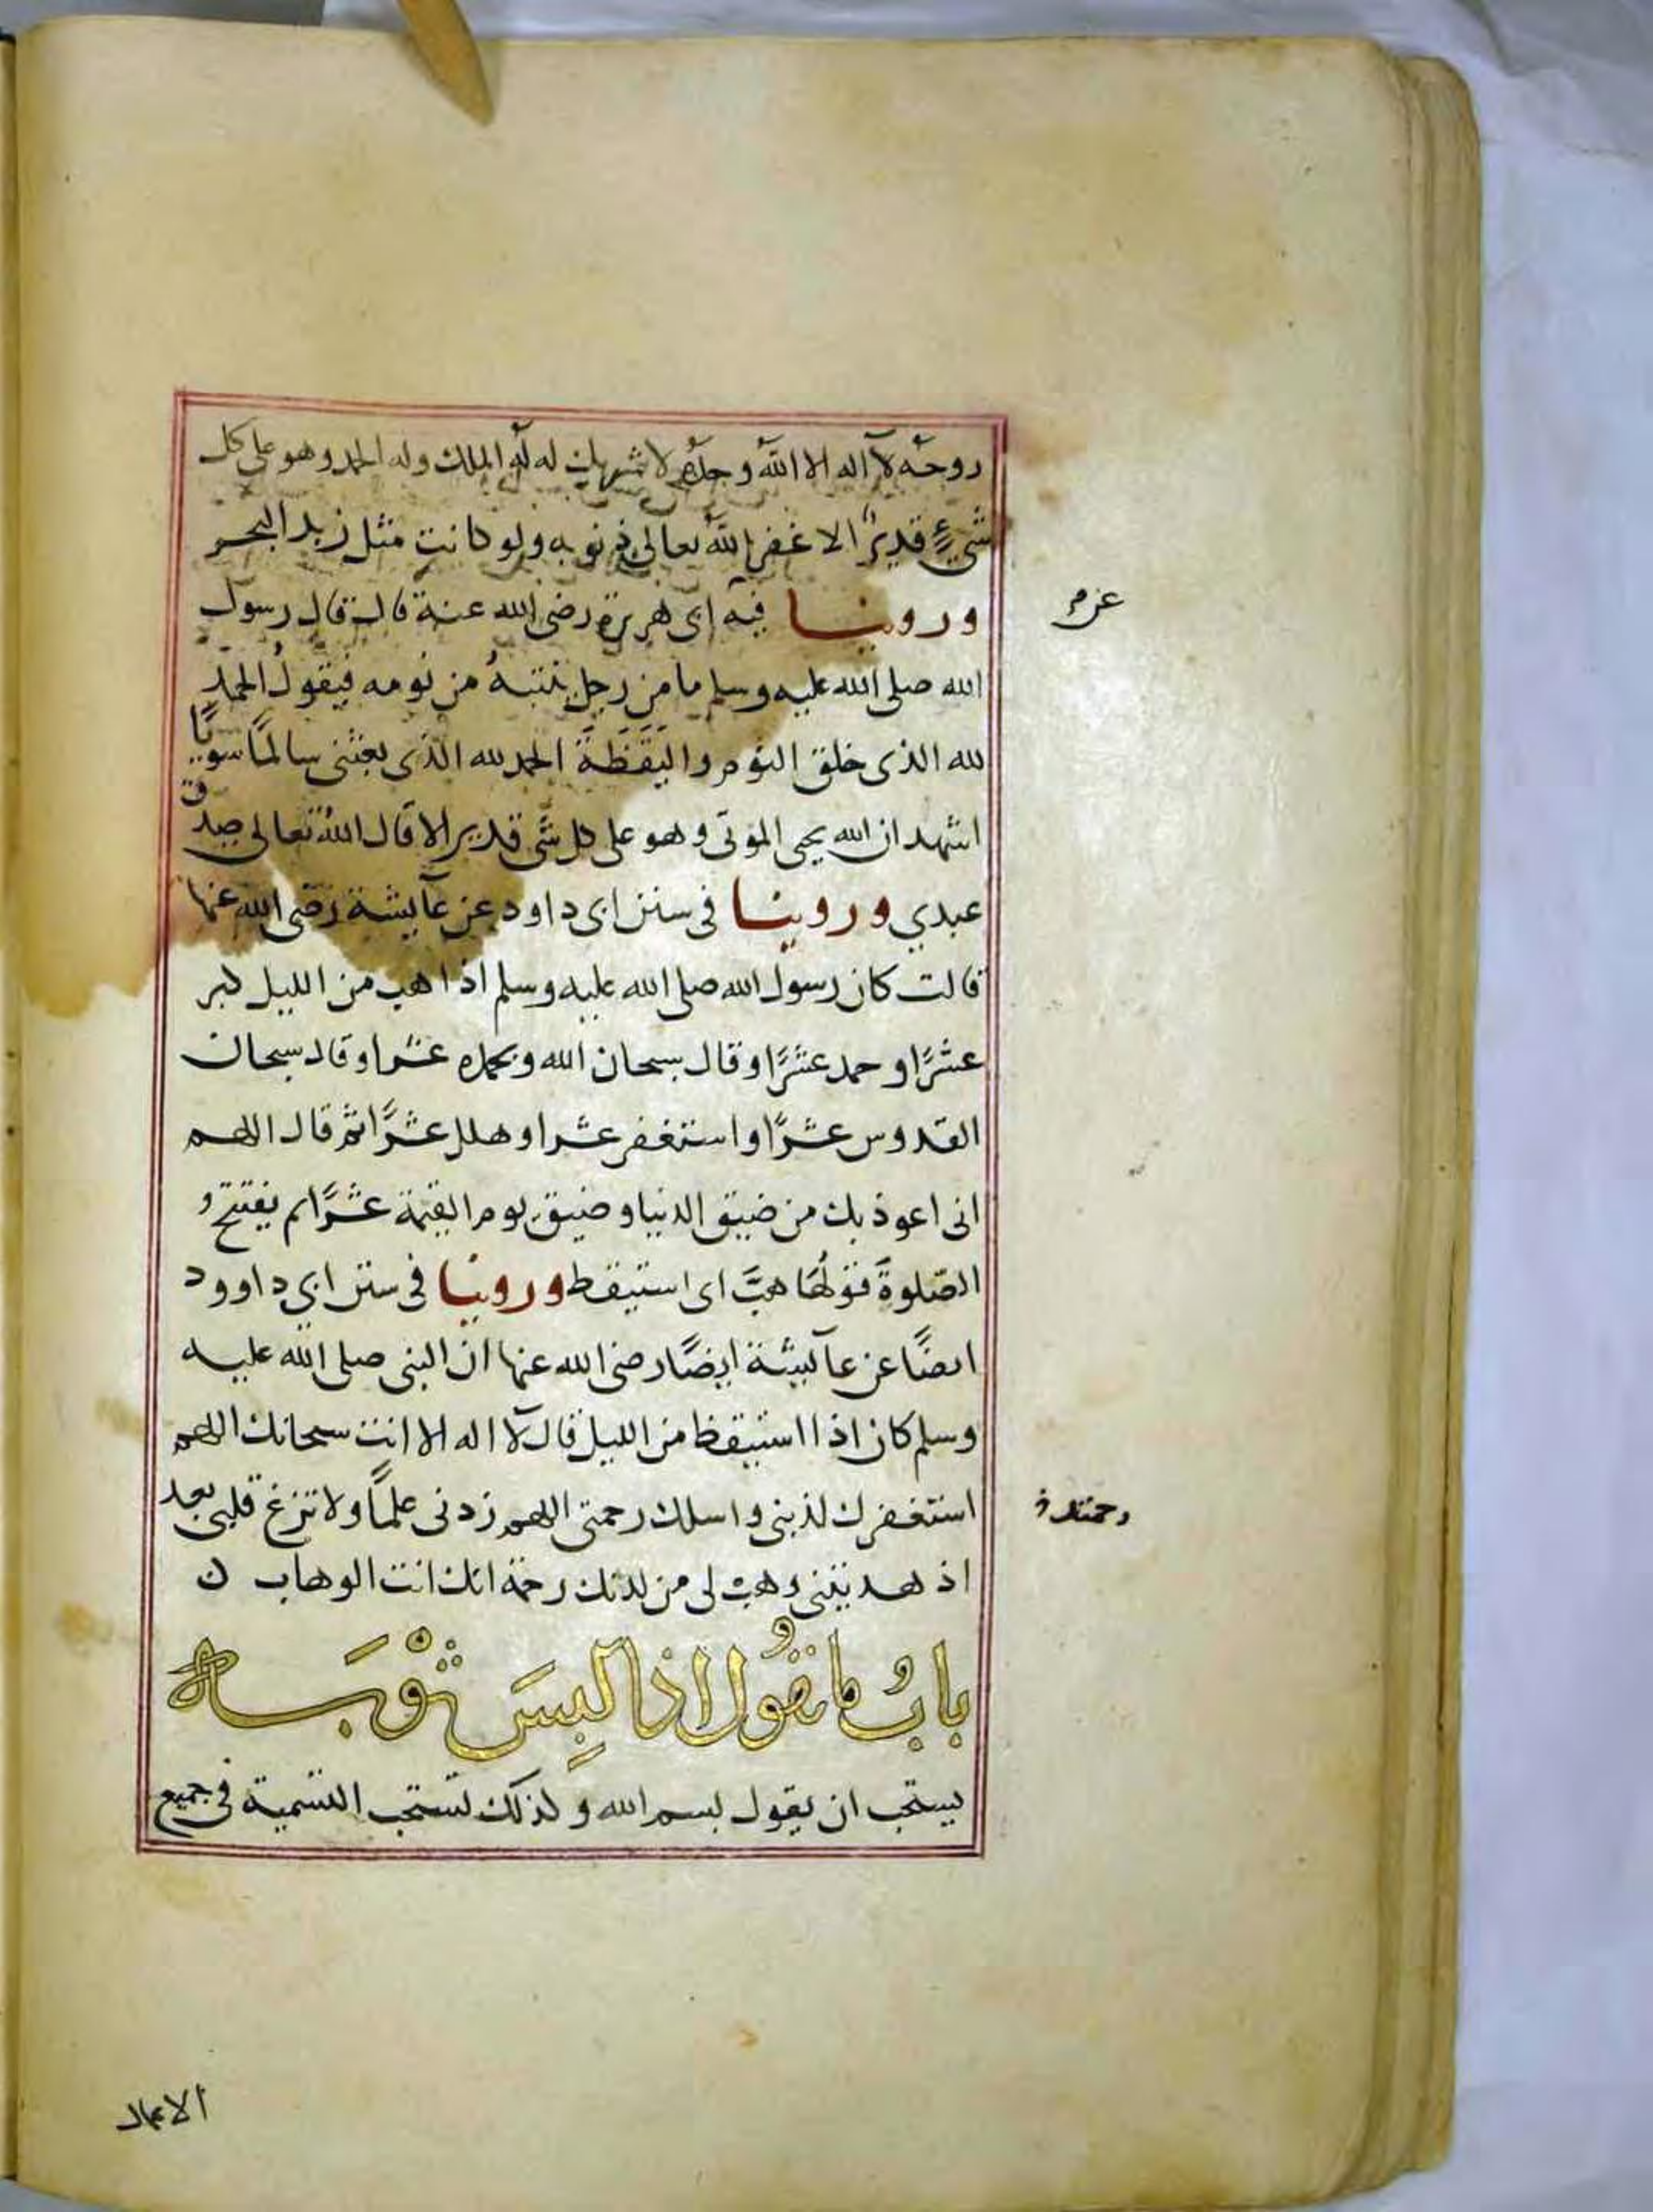 روحَه لآ اله الا اللهُ وحدُه لا شريك له لَهُ الملك وله الحمد وهو على كل
شيءٍ قديرٌ الا غفر اللهُ تعالى ذنوبه ولو كانت مثل زبد البحر
وروينا فيه ابى هريرة رضى الله عنه قال قال رسول
عن
الله صلى الله عليه وسلم ما من رجل ينتبهُ من نومه فيقولُ الحمد
لله الذى خلق النوم واليَقَظَةَ الحمد لله الذى بعثنى سالمًا سويًا
اشهد ان الله يحيى الموتى وهو على كل شى قدير الا قال اللهُ تعالى صدق
عبدي وروينا فى سنن ابى داود عن عآيشة رضى الله عنها
قالت كان رسول الله صلى الله عليه وسلم اذا هب من الليل كبر
عشرًا وحمد عشرًا وقال سبحان الله وبحمده عشرا وقال سبحان
القدوس عشرًا واستغفر عشرا وهلل عشرًا ثم قال اللهم
انى اعوذ بك من ضيق الدنيا وضيق يوم القيمة عشرًا ثم يفتتح
الصّلوةَ قولُهَا هبَّ اى استيقط وروينا فى سنن ابي داوود
ايضًا عن عآيشة ايضًا رضى الله عنها ان النبى صلى الله عليه
وسلم كان اذا استيقظ من الليل قال لآ اله الا انت سبحانك اللهم
استغفرك لذنبى واسلك رحمتى اللهم زدنى علمًا ولا تزغ قلبى بعد
رحمتك
اذ هديتنى وهب لى من لدنك رحمة انك انت الوهاب ن
بابُ ما يقُول اذا لبِسَ ثَوْبَه
يستحب ان يقول بسم الله وكذلك تستحب التسمية فى جميع
الاعمال